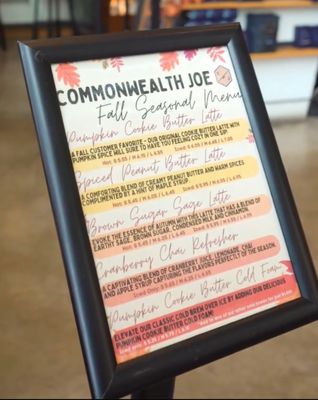 COMMONWEALTH JOE
Fall Seasonal Menu
Pumpkin Cookie Butter Latte
A FALL CUSTOMER FAVORITE - OUR ORIGINAL COOKIE BUTTER LATTE WITH
PUMPKIN SPICE WILL SURE TO HAVE YOU FEELING COZY IN ONE SIP.
Spiced Peanut Butter Latte
A COMFORTING BLEND OF CREAMY PEANUT BUTTER AND WARM SPICES
COMPLIMENTED BY A HINT OF MAPLE SYRUP.
Brown Sugar Sage Latte
EVOKE THE ESSENCE OF AUTUMN WITH THIS LATTE THAT HAS A BLEND OF
EARTHY SAGE, BROWN SUGAR, CONDENSED MILK AND CINNAMON.
Cranberry Chai Refresher
A CAPTIVATING BLEND OF CRANBERRY JUICE, LEMONADE, CHAI,
AND APPLE SYRUP CAPTURING THE FLAVORS PERFECTLY OF THE SEASON.
Iced Only:
Pumpkin Cookie Butter Cold Foam
ELEVATE OUR CLASSIC COLD BREW OVER ICE BY ADDING OUR DELICIOUS
PUMPKIN COOKIE BUTTER COLD FOAM!